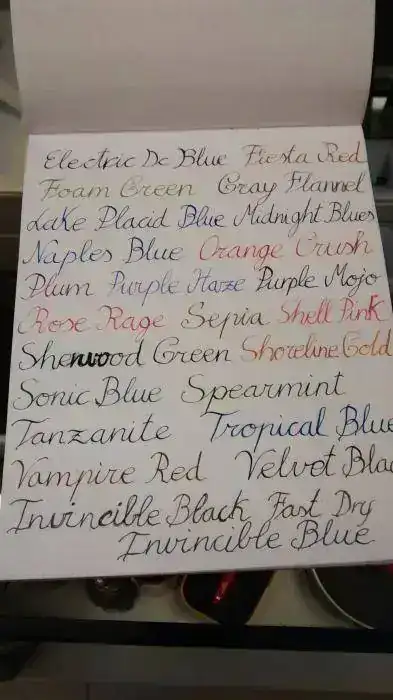 Electric Dc Blue Fiesta Red
Foam Green Gray Flannel
Lake Placid Blue Midnight Blues
Naples Blue Orange Crush
Plum Purple Haze Purple Mojo
Rose Rage Sepia Shell Pink
Sherwood Green Shoreline Gold
Sonic Blue Spearmint
Tanzanite Tropical Blue
Vampire Red Velvet Blac
Invincible Black Fast Dry
Invincible Blue